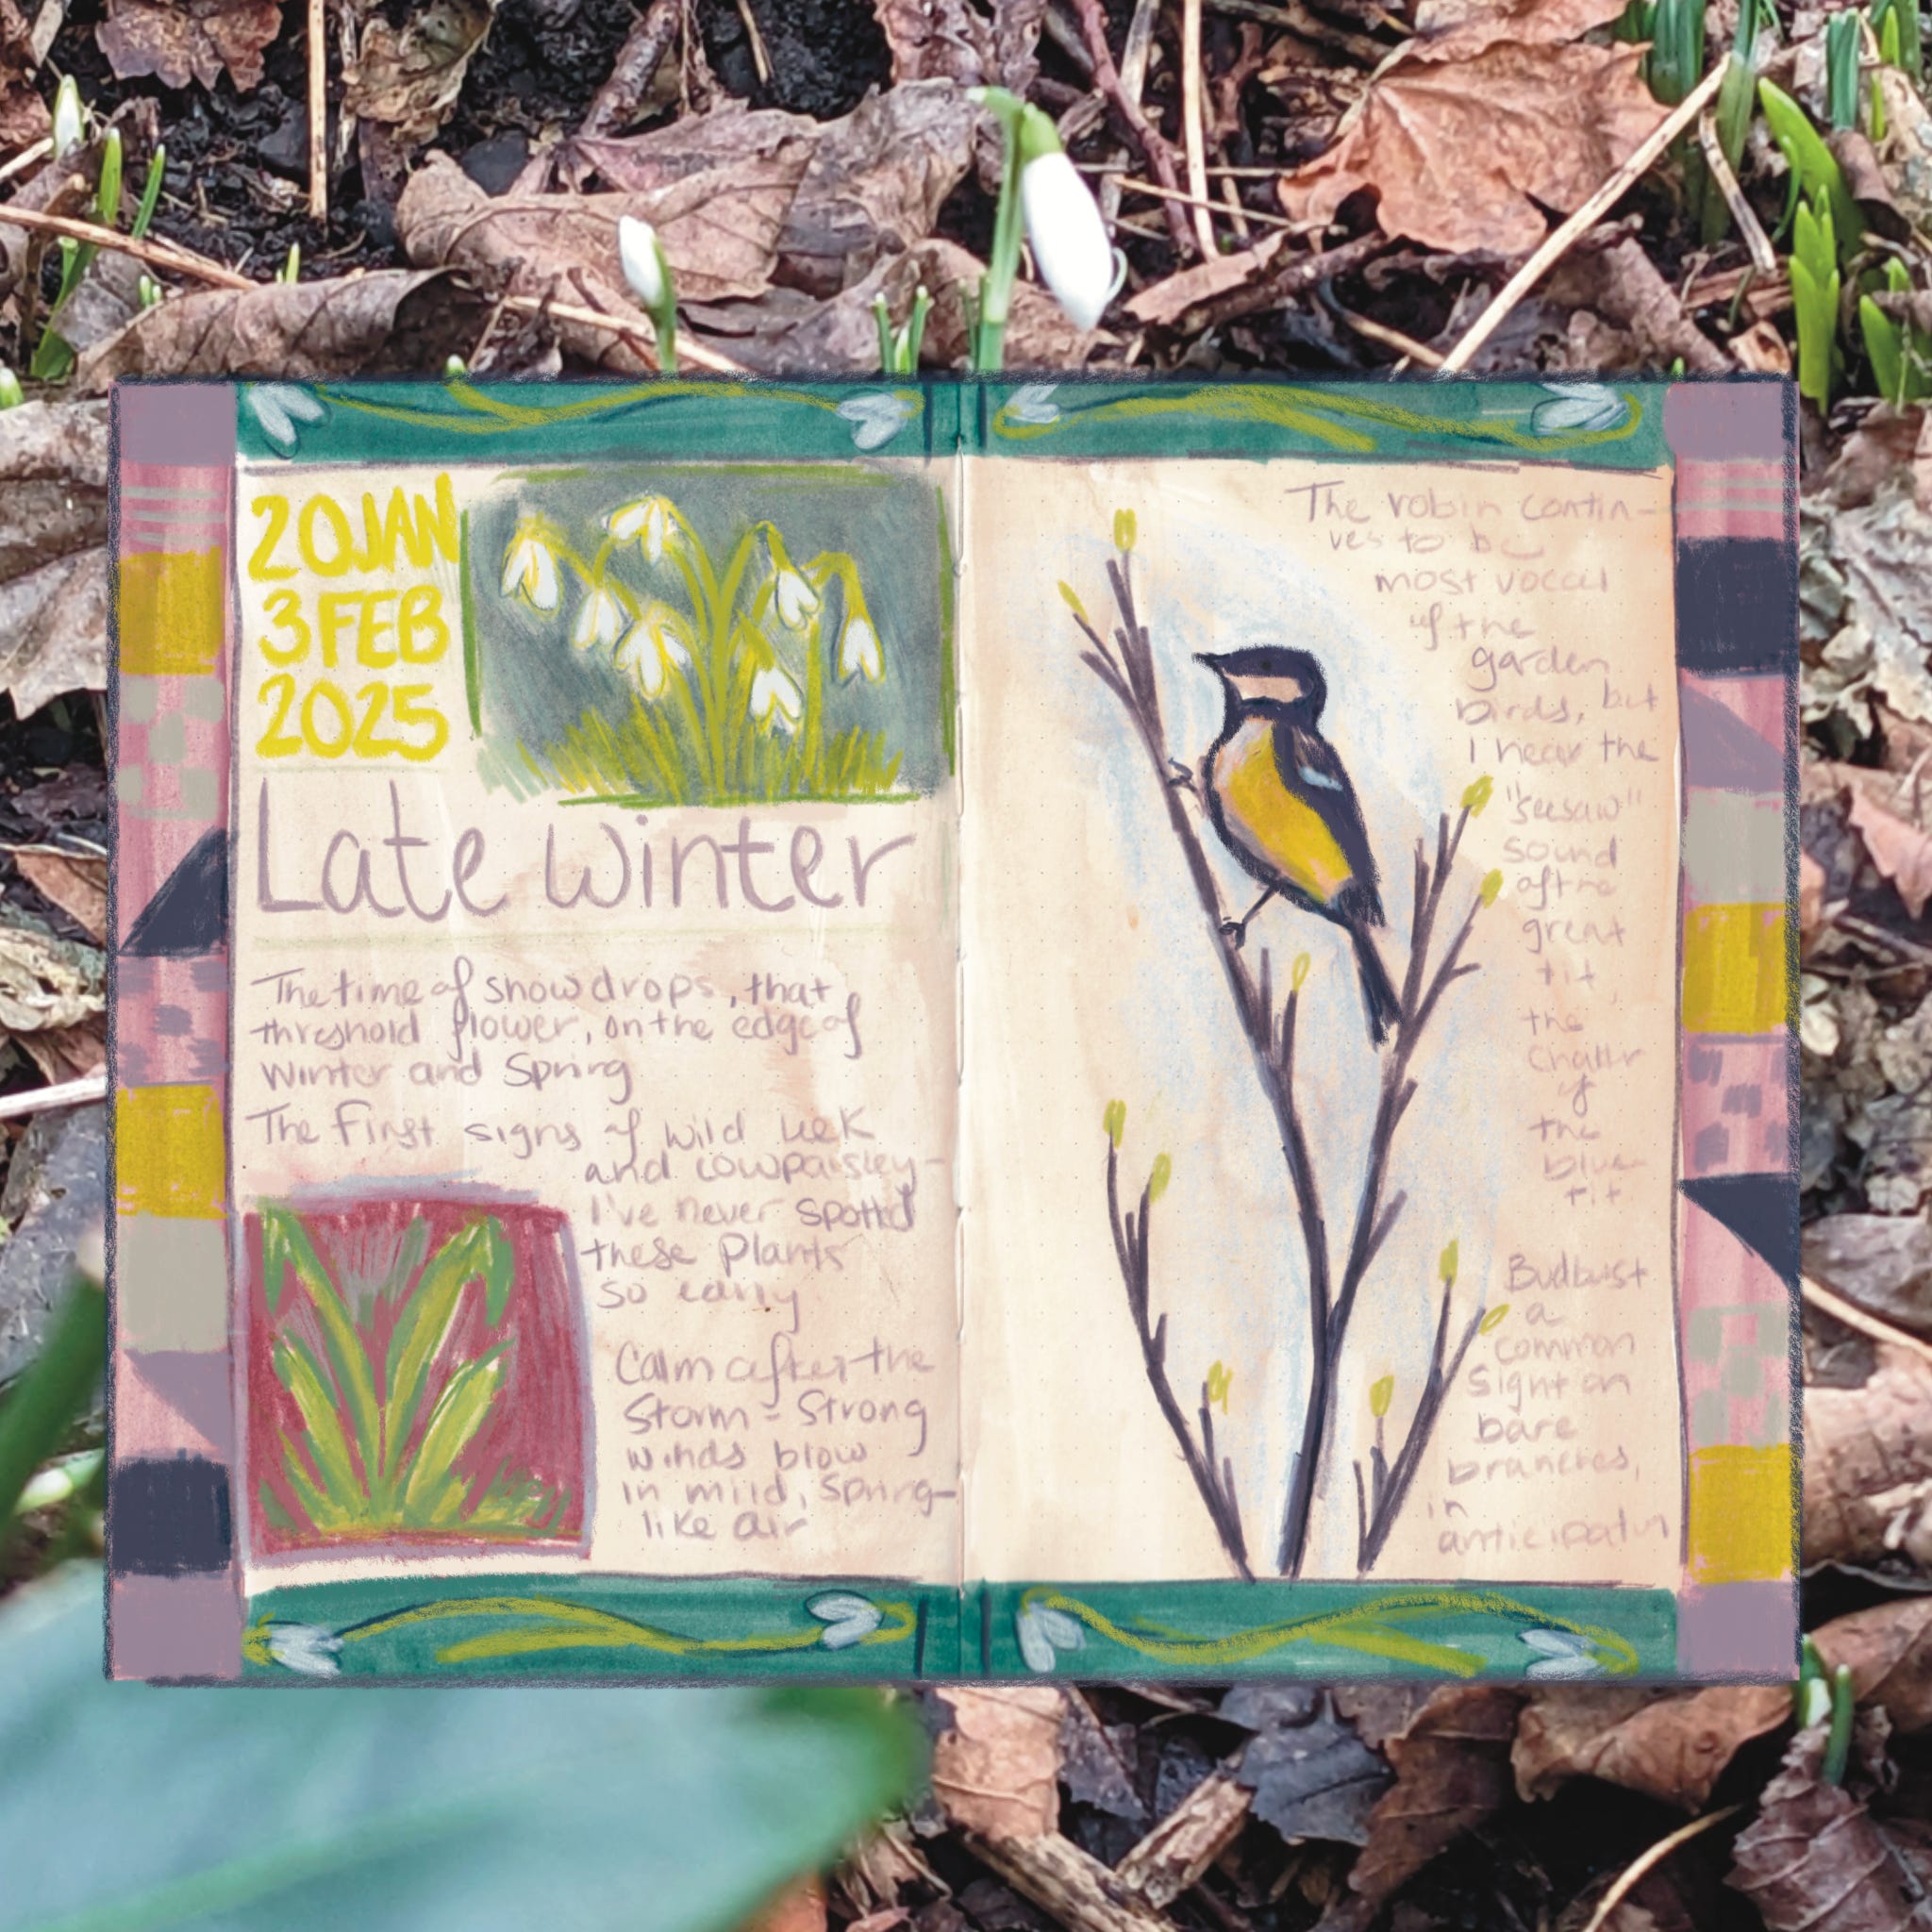 20 JAN
3 FEB
2025
Late Winter
The time of snowdrops, that
threshold flower, on the edge of
Winter and Spring
The First signs of wild leek
and cowparsley-
I've never spotted
these Plants
so early
Calm after the
Storm - Strong
winds blow
in mild, Spring-
like air
The robin contin-
ues to be
most vocal
of the
garden
birds, but
I hear the
"seesaw"
sound
of the
great
tit,
the
Chatter
of
the
blue-
tit
Budburst
a
common
Sight on
bare
branches,
in
anticipatin